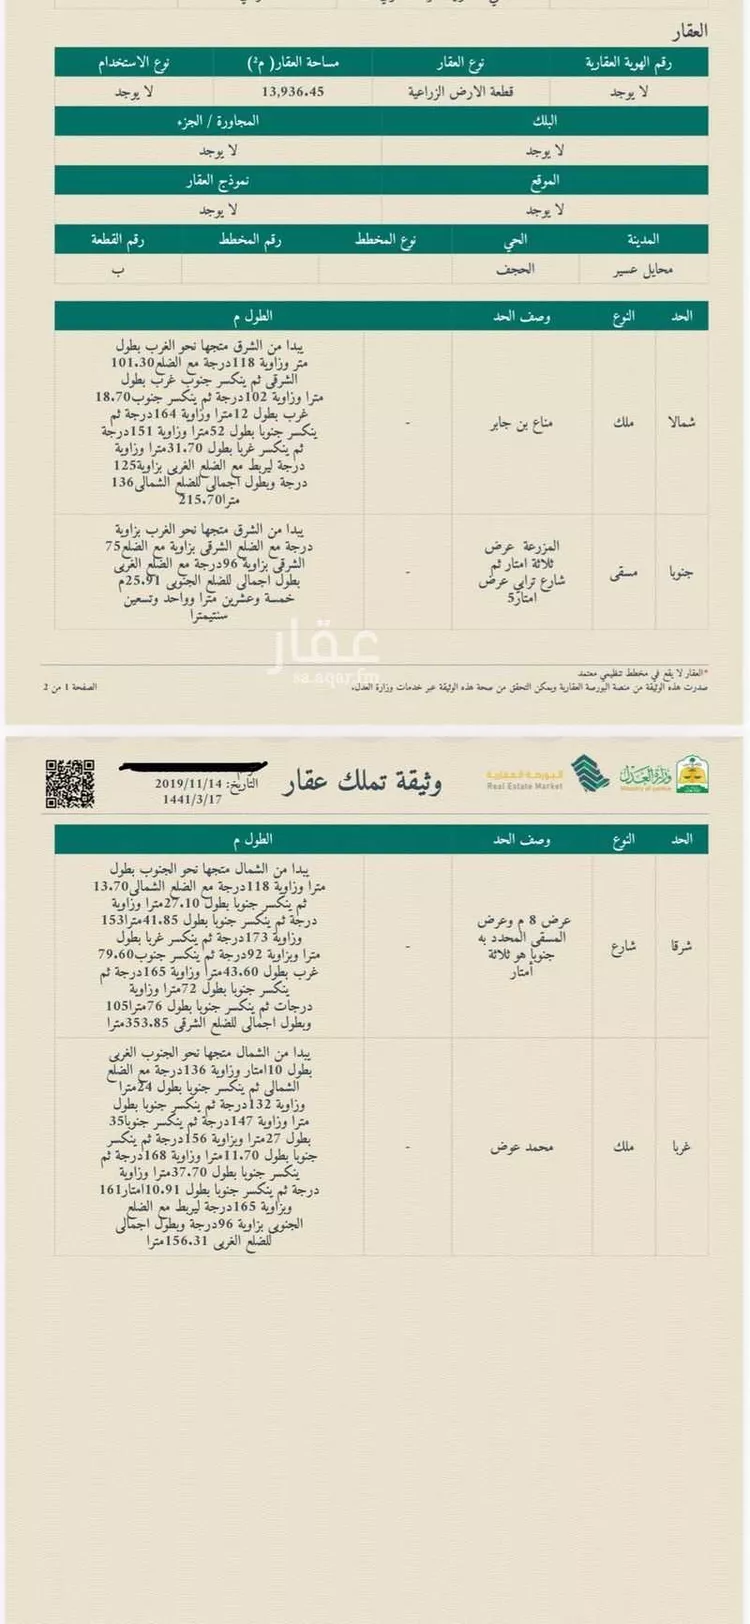 العقار
رقم الهوية العقارية نوع العقار مساحة العقار( م²) نوع الاستخدام
لا يوجد قطعة الارض الزراعية 13,936.45 لا يوجد
البلك المجاورة / الجزء
لا يوجد لا يوجد
الموقع نموذج العقار
لا يوجد لا يوجد
المدينة الحي نوع المخطط رقم المخطط رقم القطعة
محايل عسير الحجف ب
الحد النوع وصف الحد الطول م
شمالا ملك مناع بن جابر -
يبدا من الشرق متجها نحو الغرب بطول
متر وزاوية 118درجة مع الضلع101.30
الشرقى ثم ينكسر جنوب غرب بطول
مترا وزاوية 102درجة ثم ينكسر جنوب18.70
غرب بطول 12مترا وزاوية 164درجة ثم
ينكسر جنوبا بطول 52مترا وزاوية 151درجة
ثم ينكسر غربا بطول 31.70مترا وزاوية
درجة ليربط مع الضلع الغربى بزاوية125
درجة وبطول اجمالى للضلع الشمالى136
مترا215.70
جنوبا مسقى
المزرعة عرض
ثلاثة امتار ثم
شارع ترابي عرض
امتار5
-
يبدا من الشرق متجها نحو الغرب بزاوية
درجة مع الضلع الشرقى بزاوية مع الضلع75
الشرقى بزاوية 96درجة مع الضلع الغربى
بطول اجمالى للضلع الجنوبى 25.91م
خمسة وعشرين مترا وواحد وتسعين
سنتيمترا
عقار
sa.aqar.fm
*العقار لا يقع في مخطط تنظيمي معتمد
صدرت هذه الوثيقة من منصة البورصة العقارية ويمكن التحقق من صحة هذه الوثيقة عبر خدمات وزارة العدل.
الصفحة 1 من 2
وزارة العدل
Ministry of Justice
البورصة العقارية
Real Estate Market
وثيقة تملك عقار
التاريخ: 2019/11/14
1441/3/17
الحد النوع وصف الحد الطول م
شرقا شارع
عرض 8 م وعرض
المسقى المحدد به
جنوبا هو ثلاثة
أمتار
-
يبدا من الشمال متجها نحو الجنوب بطول
مترا وزاوية 118درجة مع الضلع الشمالى13.70
ثم ينكسر جنوبا بطول 27.10مترا وزاوية
درجة ثم ينكسر جنوبا بطول 41.85مترا153
وزاوية 173درجة ثم ينكسر غربا بطول
مترا وبزاوية 92درجة ثم ينكسر جنوب79.60
غرب بطول 43.60مترا وزاوية 165درجة ثم
ينكسر جنوبا بطول 72مترا وزاوية
درجات ثم ينكسر جنوبا بطول 76مترا105
وبطول اجمالى للضلع الشرقى 353.85مترا
غربا ملك محمد عوض -
يبدا من الشمال متجها نحو الجنوب الغربى
بطول 10امتار وزاوية 136درجة مع الضلع
الشمالى ثم ينكسر جنوبا بطول 24مترا
وزاوية 132درجة ثم ينكسر جنوبا بطول
مترا وزاوية 147درجة ثم ينكسر جنوبا35
بطول 27مترا وبزاوية 156درجة ثم ينكسر
جنوبا بطول 11.70مترا وزاوية 168درجة ثم
ينكسر جنوبا بطول 37.70مترا وزاوية
درجة ثم ينكسر جنوبا بطول 10.91امتار161
وبزاوية 165درجة ليربط مع الضلع
الجنوبى بزاوية 96درجة وبطول اجمالى
للضلع الغربى 156.31مترا